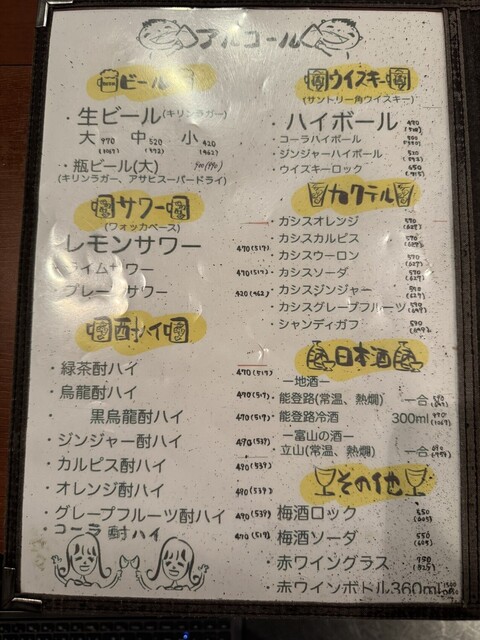 アルコール
ビール
・生ビール(キリンラガー)
大 中 520 小 420
(572) (462)
・瓶ビール(大)
(キリンラガー、アサヒスーパードライ)
サワー
(ウォッカベース)
レモンサワー 470(517)
ライムサワー 470(517)
プレーンサワー 420(462)
酎ハイ
・緑茶酎ハイ 470(517)
・烏龍酎ハイ 470(517)
黒烏龍酎ハイ 470(517)
・ジンジャー酎ハイ 490(539)
・カルピス酎ハイ 490(539)
・オレンジ酎ハイ 490(539)
・グレープフルーツ酎ハイ 490(539)
・コーラ酎ハイ
ウイスキー
(サントリー角ウイスキー)
・ハイボール
・コーラハイボール
・ジンジャーハイボール
・ウイスキーロック
カクテル
・カシスオレンジ 570
(627)
・カシスカルピス 570
(627)
・カシスウーロン 570
(627)
・カシスソーダ 570
(627)
・カシスジンジャー 570
(627)
・カシスグレープフルーツ
・シャンディガフ
日本酒
ー地酒ー
・能登路(常温、熱燗) 一合
・能登路冷酒 300ml
ー富山の酒ー
・立山(常温、熱燗) 一合
その他
・梅酒ロック 550
(605)
・梅酒ソーダ 550
(605)
・赤ワイングラス 750
(825)
・赤ワインボトル360ml